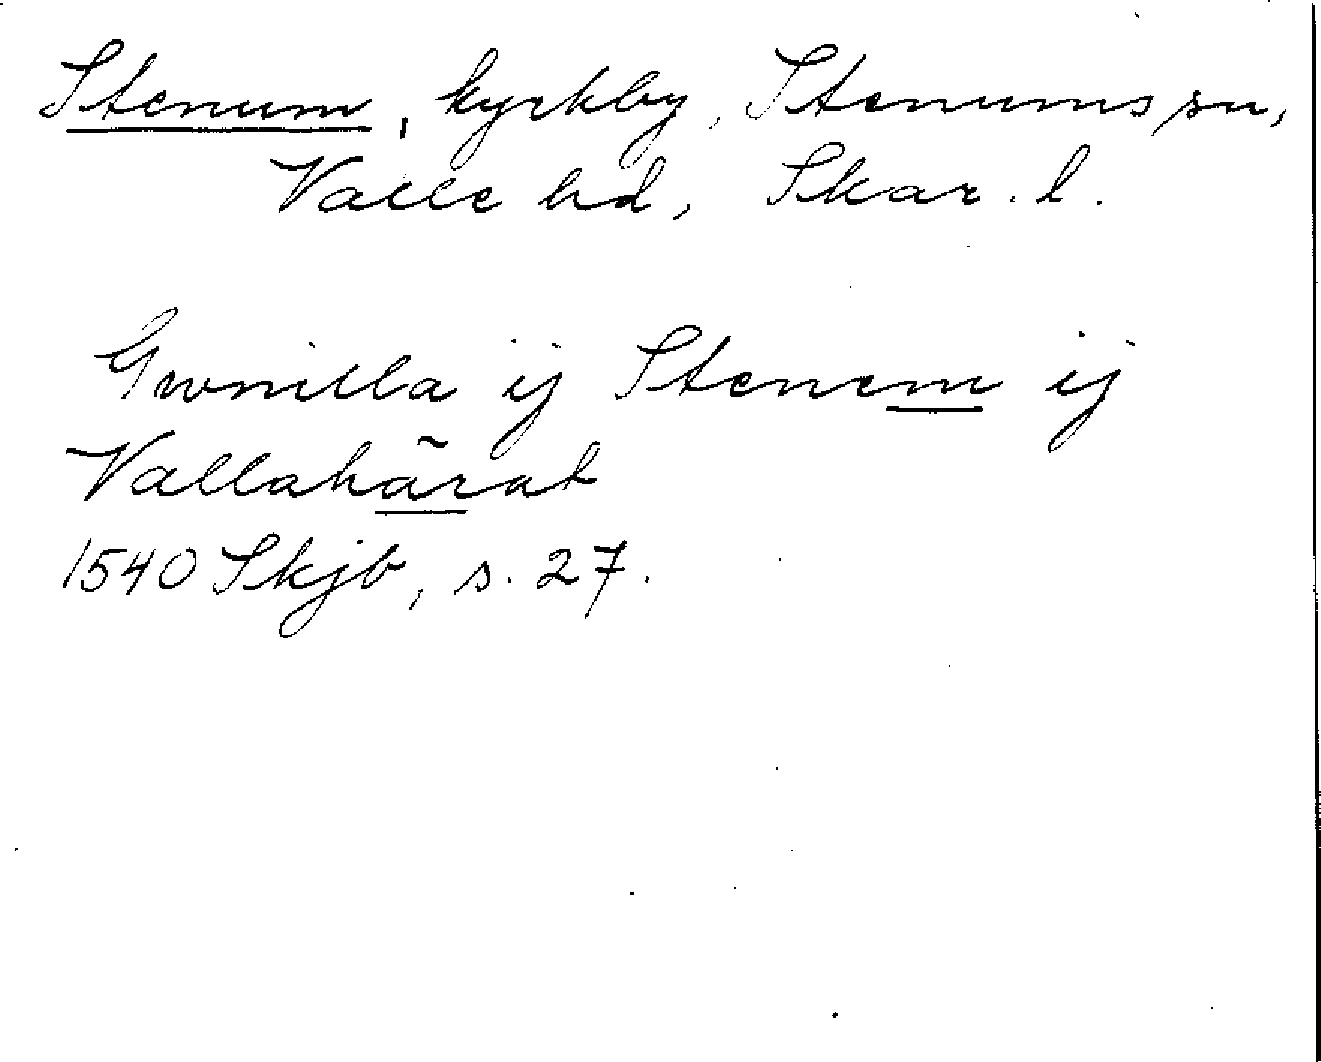 Stenum, kyrkby, Stenums sn,
Valle hd, Skar. l.
Gwnilla ij Stenem ij
Vallahärat
1540 Skjb, s. 27.